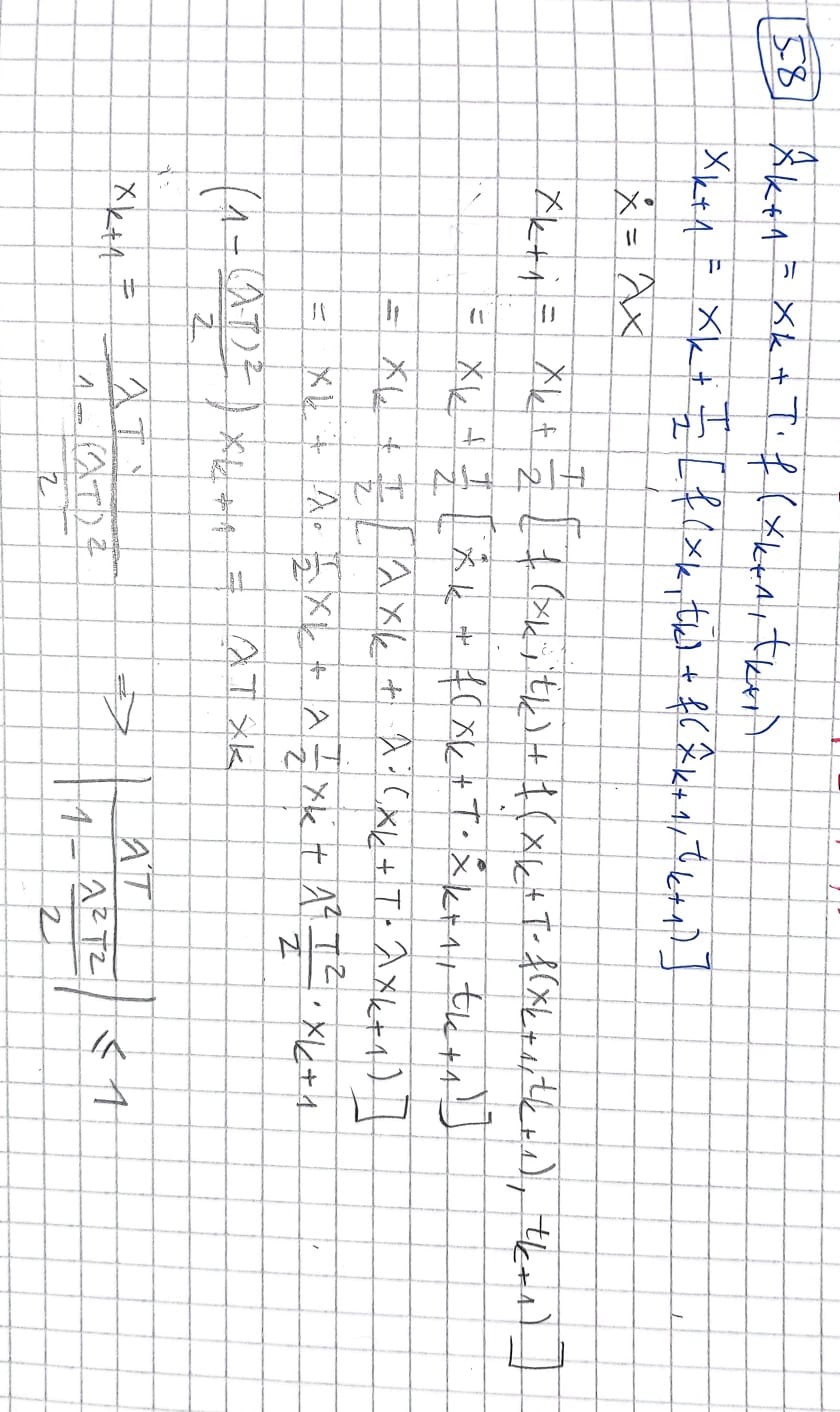 5.8 x̂k+1 = xk + T · f(xk+1, tk+1)
xk+1 = xk + T/2 [f(xk, tk) + f(x̂k+1, tk+1)]
ẋ = λx
xk+1 = xk + T/2 [f(xk, tk) + f(xk + T · f(xk+1, tk+1), tk+1)]
= xk + T/2 [ẋk + f(xk + T · ẋk+1, tk+1)]
= xk + T/2 [λxk + λ · (xk + T · λxk+1)]
= xk + λ · T/2 xk + λ T/2 xk + λ² T²/2 · xk+1
(1 - (λT)²/2) xk+1 = λT xk
xk+1 = λT / (1 - (λT)²/2) ⇒ | λT / (1 - λ²T²/2) | ≤ 1